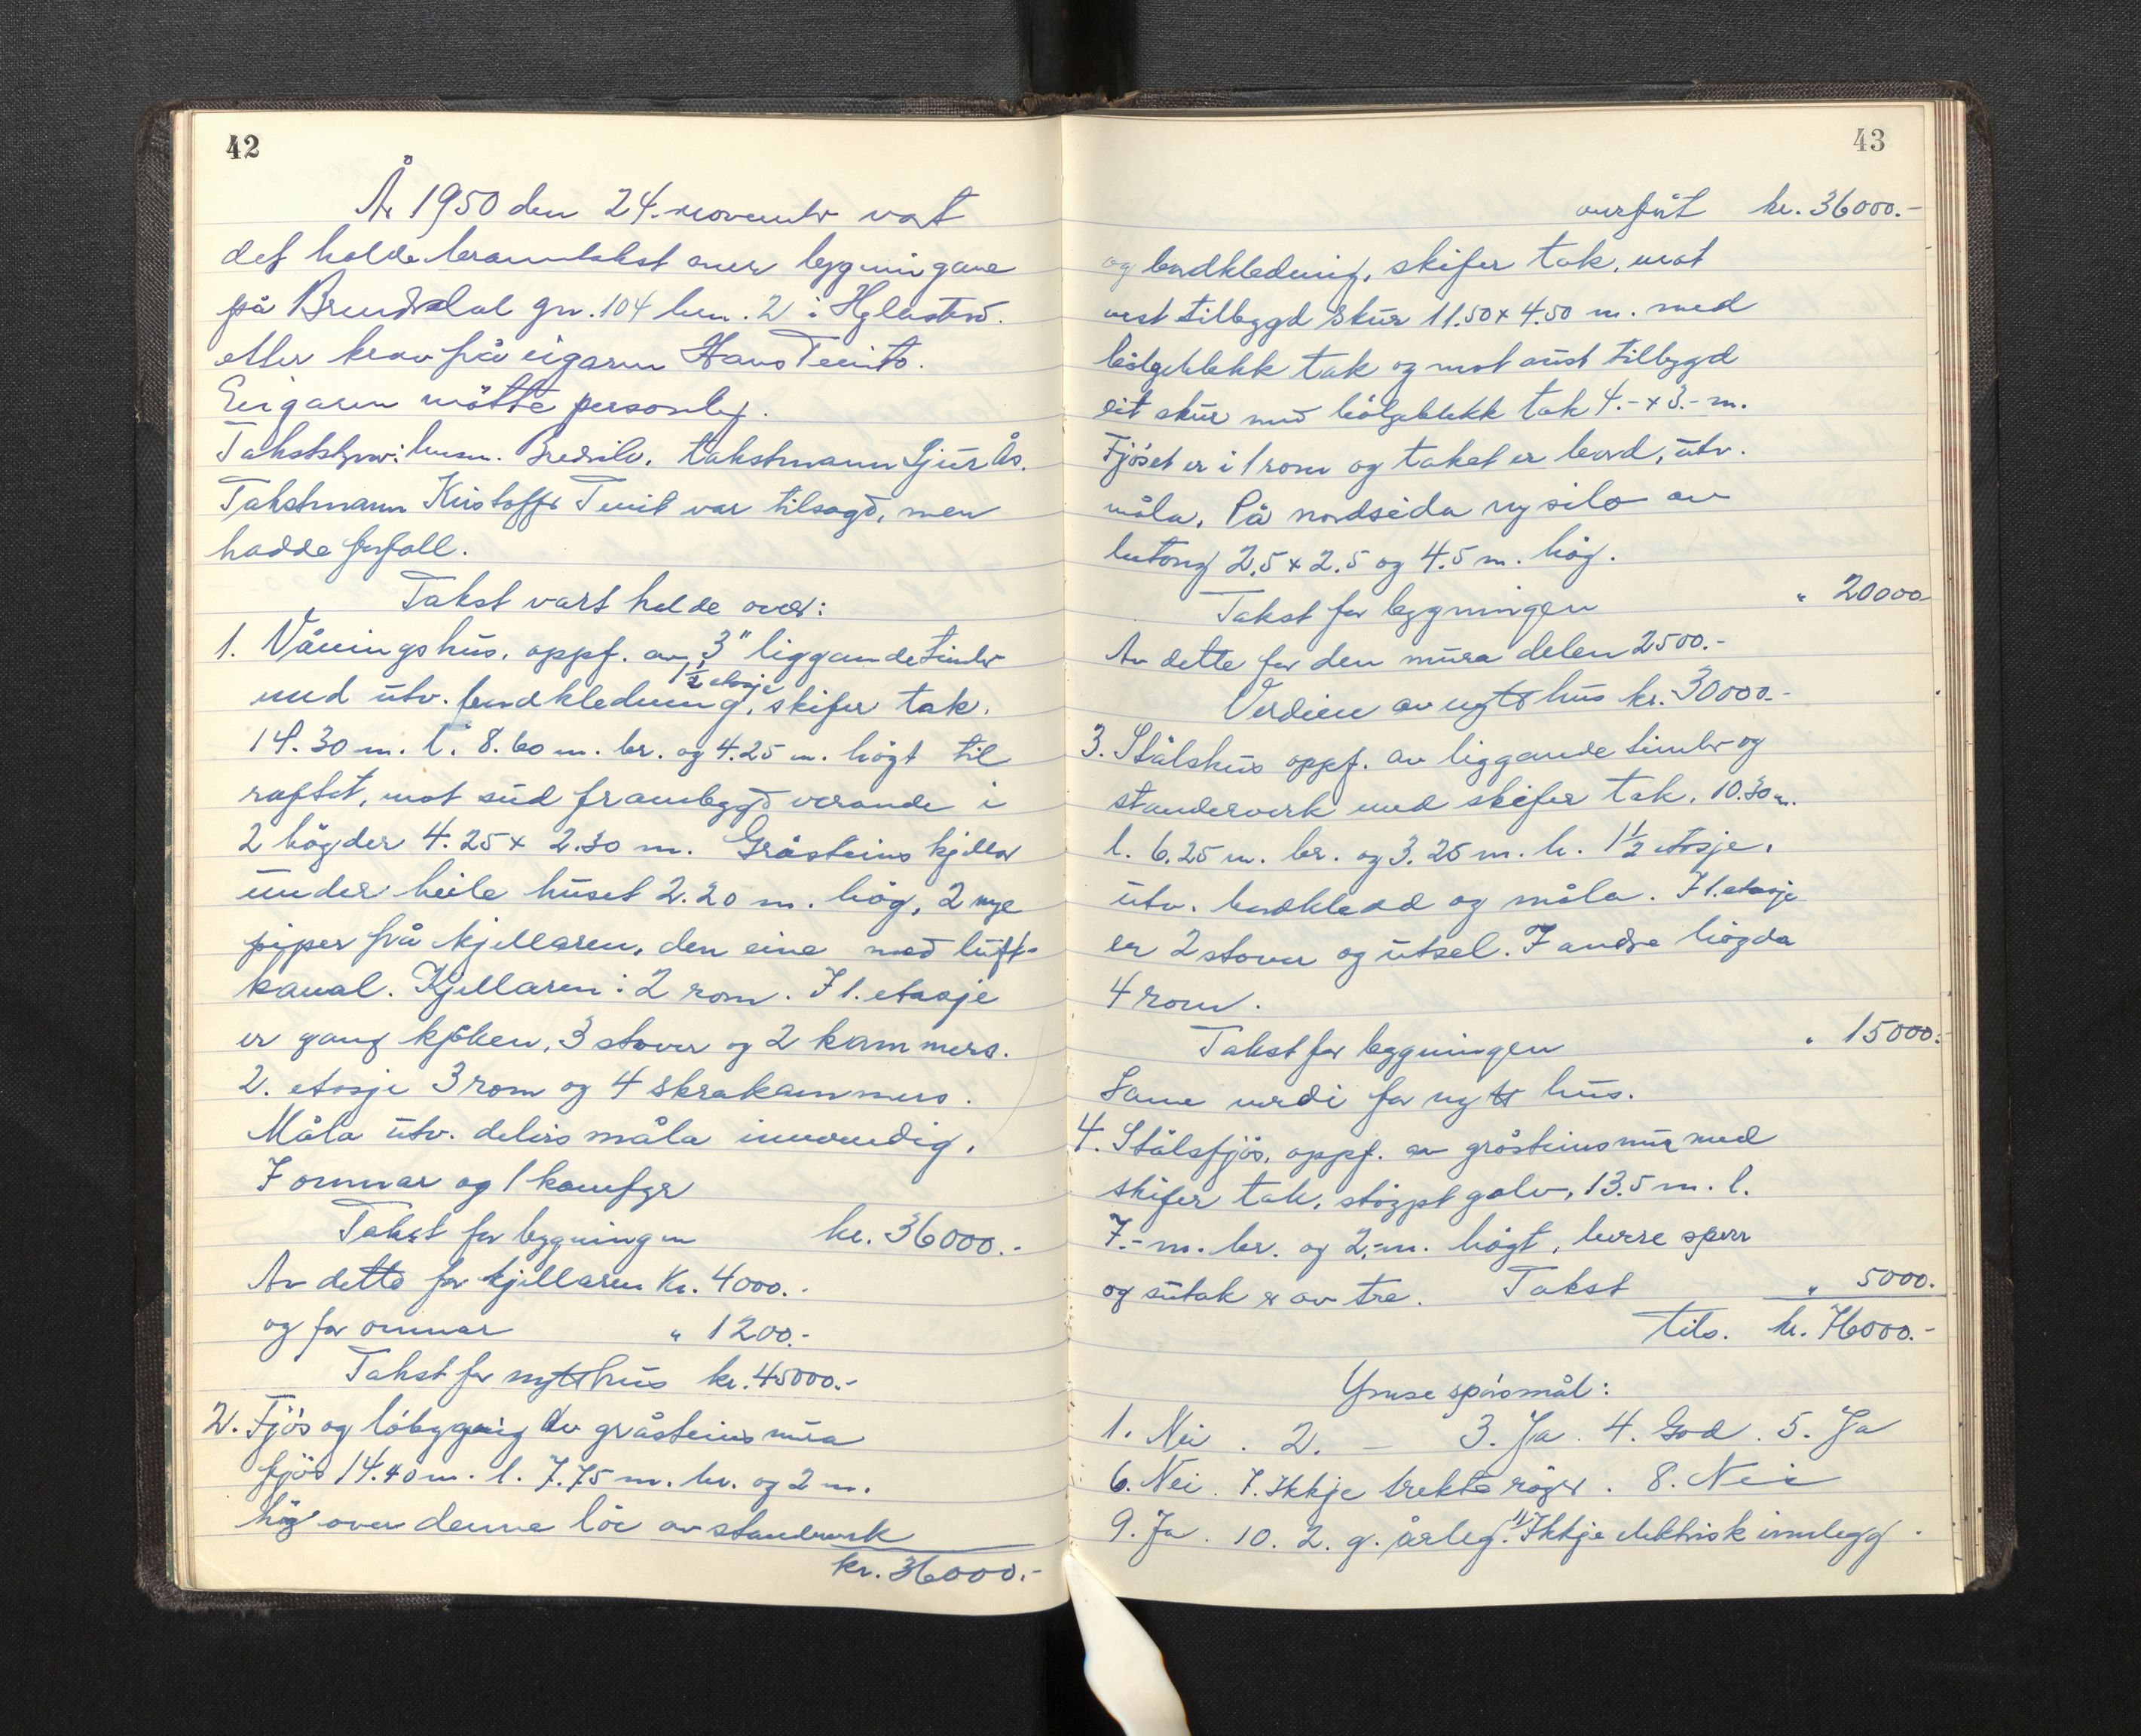 42
År 1950 den 24. november vart
det halde branntakst over bygningane
på Brudsdal gn. 104 bn. 2 i
etter krav frå eigaren Hans Tveito.
Eigaren møtte personleg.
Takststyrar: lensm. takstmann Sjur Ås.
Takstmann Kristoffer Tveit var tilsagd, men
hadde forfall.
Takst vart halde over:
1. Våningshus, oppf. av 3" liggande timbr
1 1/2 etasje
med utv. bordkledning, skifer tak.
14.30 m. l. 8.60 m. br. og 4.25 m. högt til
raftet, mot süd frambyggd veranda i
2 högder 4.25 x 2.30 m. Gråsteins kjellar
ünder heile hüset 2.20 m. hög, 2 nye
piper frå kjellaren, den eine med lüft-
kanal. Kjellaren: 2 rom. I 1. etasje
er gang kjöken, 3 stover og 2 kammers.
2. etasje 3 rom og 4 skrakammers.
Måla ütv. delvis måla innvendig.
7 omnar og 1 komfyr
Takst for bygningen kr. 36000.-
Av dette for kjellaren Kr. 4000.-
og for omnar " 1200.-
Takst for nytt hüs kr. 45000.-
2. Fjös og löbygging av gråsteins müra
fjös 14.40 m. l. 7.75 m. br. og 2 m.
hög over denne löe av standverk
kr. 36000.-
43
overfört kr. 36000.-
og bordkledning, skifer tak, mot
vest tilbyggd skür 11.50 x 4.50 m. med
bölgeblekk tak og mot aust tilbygd
eit skür med bölgeblekk tak 4.- x 3.- m.
Fjöset er i 1 rom og taket er bord, ütv.
måla. På nordsida ny silo av
betong 2.5 x 2.5 og 4.5 m. hög.
Takst for bygningen " 20000
Av dette for den müra delen 2500.-
Verdien av nytt hüs kr. 30000.-
3. Stålshüs oppf. av liggande timbr og
standerverk med skifer tak. 10.30 m.
l. 6.25 m. br. og 3.25 m. h. 1 1/2 etasje,
ütv. bordkledd og måla. I 1. etasje
er 2 stover og ütsel. I andre högda
4 rom.
Takst for bygningen " 15000.-
Same verdi for nytt hüs.
4. Stålsfjös, oppf. av gråsteinsmür med
skifer tak, stöypt golv, 13.5 m. l.
7.- m. br. og 2.- m. högt, berre sperr
og sütak er av tre. Takst " 5000.-
tils. kr. 76000.-
Ymse spörsmål:
1. Nei. 2. - 3. Ja. 4. God. 5. Ja
6. Nei. 7. Ikkje trekte röyr. 8. Nei
9. Ja. 10. 2. g. årleg. 11 Ikkje elektrisk innlegg.